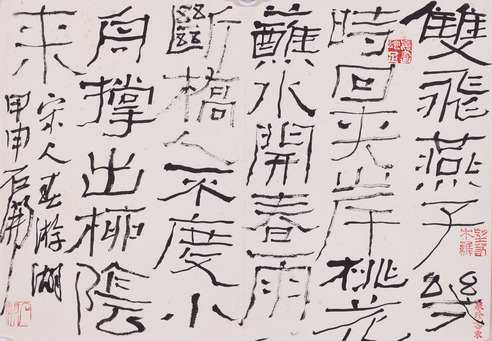 雙飛燕子幾
時回夾岸桃花
蘸水開春雨
斷橋人不度小
舟撐出柳陰
来
宋人春游湖
甲申石開